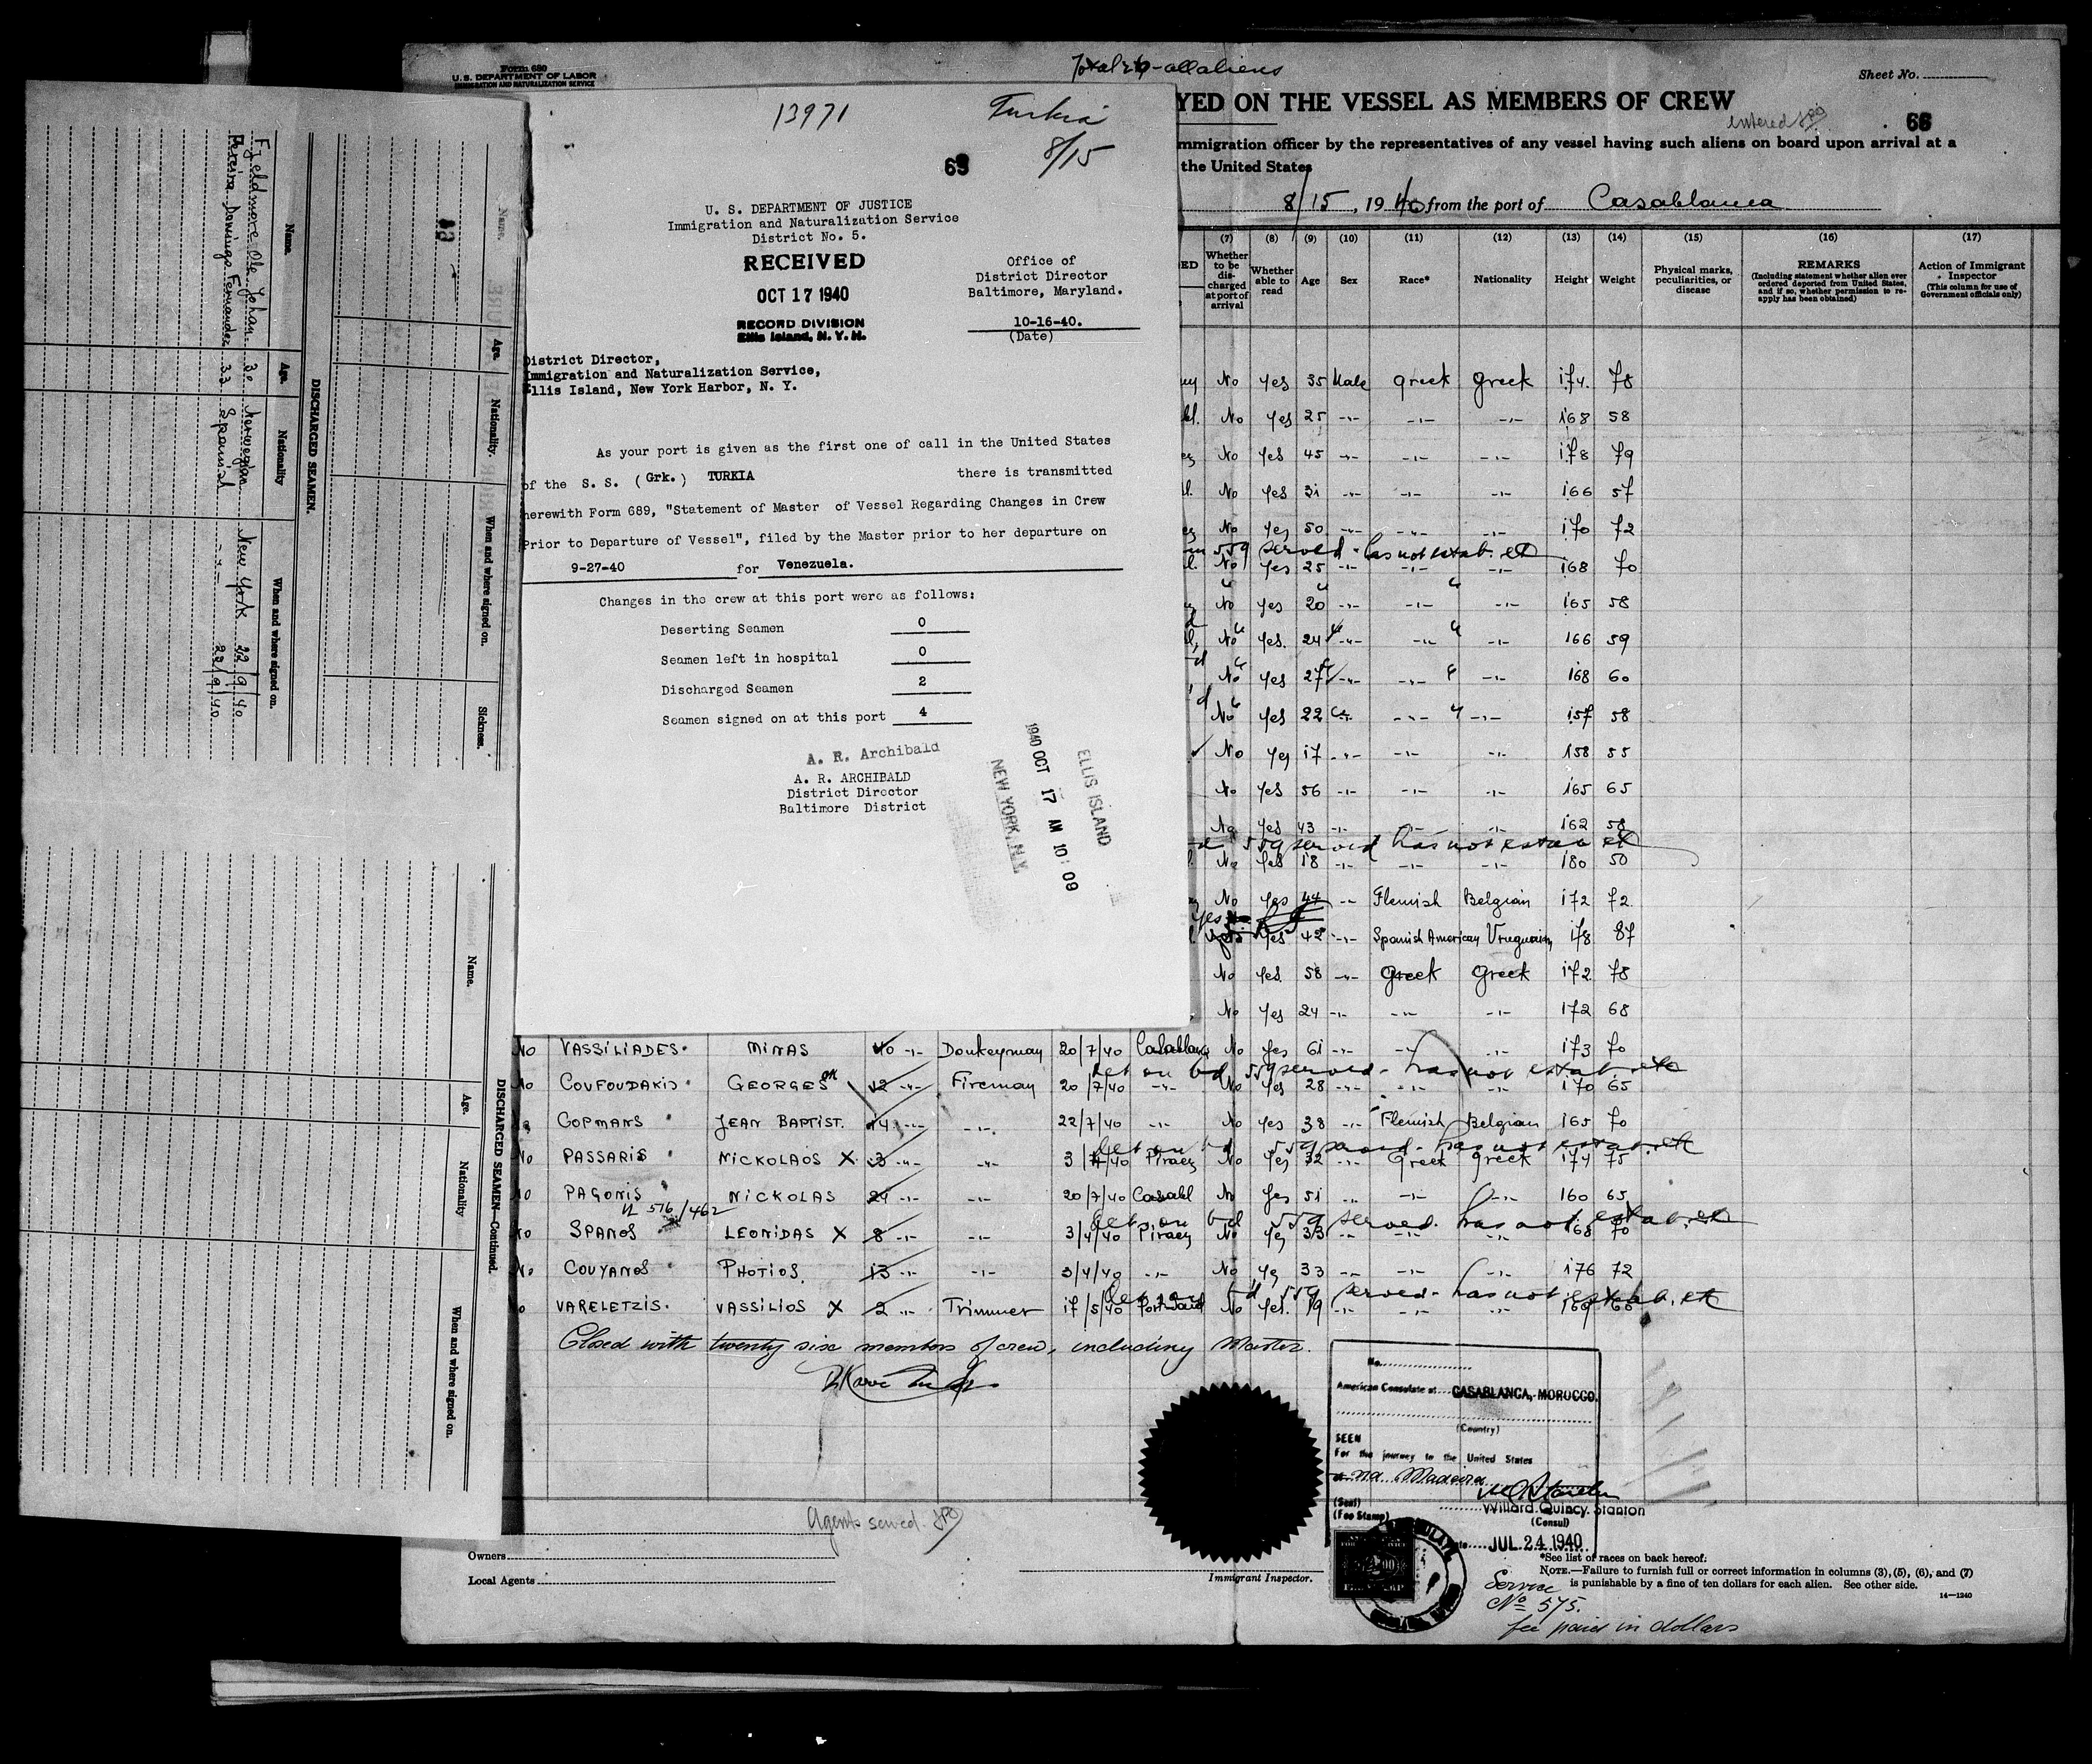 Form 680
U. S. DEPARTMENT OF LABOR
IMMIGRATION AND NATURALIZATION SERVICE
Total 26 - all aliens
Sheet No.
YED ON THE VESSEL AS MEMBERS OF CREW
entered
66
mmigration officer by the representatives of any vessel having such aliens on board upon arrival at a
the United States
8/15, 1940 from the port of Casablanca
13971
Turkia
8/15
U. S. DEPARTMENT OF JUSTICE
Immigration and Naturalization Service
District No. 5.
RECEIVED
OCT 17 1940
RECORD DIVISION
Ellis Island, N. Y. H.
Office of
District Director
Baltimore, Maryland.
10-16-40.
(Date)
District Director,
Immigration and Naturalization Service,
Ellis Island, New York Harbor, N. Y.
As your port is given as the first one of call in the United States
of the S. S. (Grk.) TURKIA there is transmitted
herewith Form 689, "Statement of Master of Vessel Regarding Changes in Crew
Prior to Departure of Vessel", filed by the Master prior to her departure on
9-27-40 for Venezuela.
Changes in the crew at this port were as follows:
Deserting Seamen 0
Seamen left in hospital 0
Discharged Seamen 2
Seamen signed on at this port 4
A. R. Archibald
A. R. ARCHIBALD
District Director
Baltimore District
ELLIS ISLAND
1940 OCT 17 AM 10:09
NEW YORK, N.Y.
Name. Age. Nationality When and where signed on. Sickness.
DISCHARGED SEAMEN.
Name. Age. Nationality When and where signed on.
Fjeldmore Ole Johan 30 Norwegian New York 22/9/40
Pereira Domingo Fernandez 33 Spanish -"- 22/9/40
DISCHARGED SEAMEN—Continued.
Name. Age. Nationality When and where signed on.
(7) (8) (9) (10) (11) (12) (13) (14) (15) (16) (17)
Whether to be discharged at port of arrival
Whether able to read
Age
Sex
Race*
Nationality
Height
Weight
Physical marks, peculiarities, or disease
REMARKS
(Including statement whether alien ever ordered deported from United States, and if so, whether permission to reapply has been obtained)
Action of Immigrant Inspector
(This column for use of Government officials only)
No Yes 35 Male Greek Greek 174 78
No Yes 25 -"- -"- -"- 168 58
No Yes 45 -"- -"- -"- 178 79
No Yes 31 -"- -"- -"- 166 57
No Yes 50 -"- -"- -"- 170 72
559 served - has not estab. etc
No Yes 25 -"- -"- -"- 168 70
No Yes 20 -"- -"- -"- 165 58
No Yes. 24 -"- -"- -"- 166 59
No Yes 27 -"- -"- -"- 168 60
No Yes 22 -"- -"- -"- 157 58
No Yes 17 -"- -"- -"- 158 55
No Yes 56 -"- -"- -"- 165 65
No Yes 43 -"- -"- -"- 162 58
559 served has not estab etc
No Yes 18 -"- -"- -"- 180 50
No Yes 44 -"- Flemish Belgian 172 72
Yes 42 -"- Spanish American Uruguaian 178 87
No Yes 58 -"- Greek Greek 172 78
No Yes 24 -"- -"- -"- 172 68
No VASSILIADES MINAS 40 -"- Donkeyman 20/7/40 Casablanca No Yes 61 -"- -"- -"- 173 70
Det on bd 559 served - has not estab. etc
No COUFOUDAKIS GEORGES 12 -"- Fireman 20/7/40 -"- No Yes 28 -"- -"- -"- 170 65
No COPMANS JEAN BAPTIST. 14 -"- -"- 22/7/40 -"- No Yes 38 -"- Flemish Belgian 165 70
Det on bd 559 served - has not estab. etc
No PASSARIS NICKOLAOS X 3 -"- -"- 3/4/40 Piraeus No Yes 32 -"- Greek Greek 174 75
No PAGONIS NICKOLAS 24 -"- -"- 20/7/40 Casabl No Yes 51 -"- -"- -"- 160 65
516/462
Det on bd 559 served - has not estab. etc
No SPANOS LEONIDAS X 8 -"- -"- 3/4/40 Piraeus No Yes 33 -"- -"- -"- 168 70
No COUYANOS PHOTIOS 13 -"- -"- 3/4/40 -"- No Yes 33 -"- -"- -"- 176 72
Det on bd 559 served - has not estab. etc
No VARELETZIS. VASSILIOS X 2 -"- Trimmer 17/5/40 No Yes. 19 -"- -"- -"-
Closed with twenty six members of crew, including Master.
No.
American Consulate at CASABLANCA, MOROCCO.
(Country)
SEEN
For the journey to the United States
via Madeira
Willard Quincy Stanton
(Consul)
(Seal)
(Fee Stamp)
JUL 24 1940
Agents served.
Owners
Local Agents
Immigrant Inspector.
*See list of races on back hereof.
NOTE.—Failure to furnish full or correct information in columns (3), (5), (6), and (7)
is punishable by a fine of ten dollars for each alien. See other side.
14—1240
Service
No 575.
fee paid in dollars